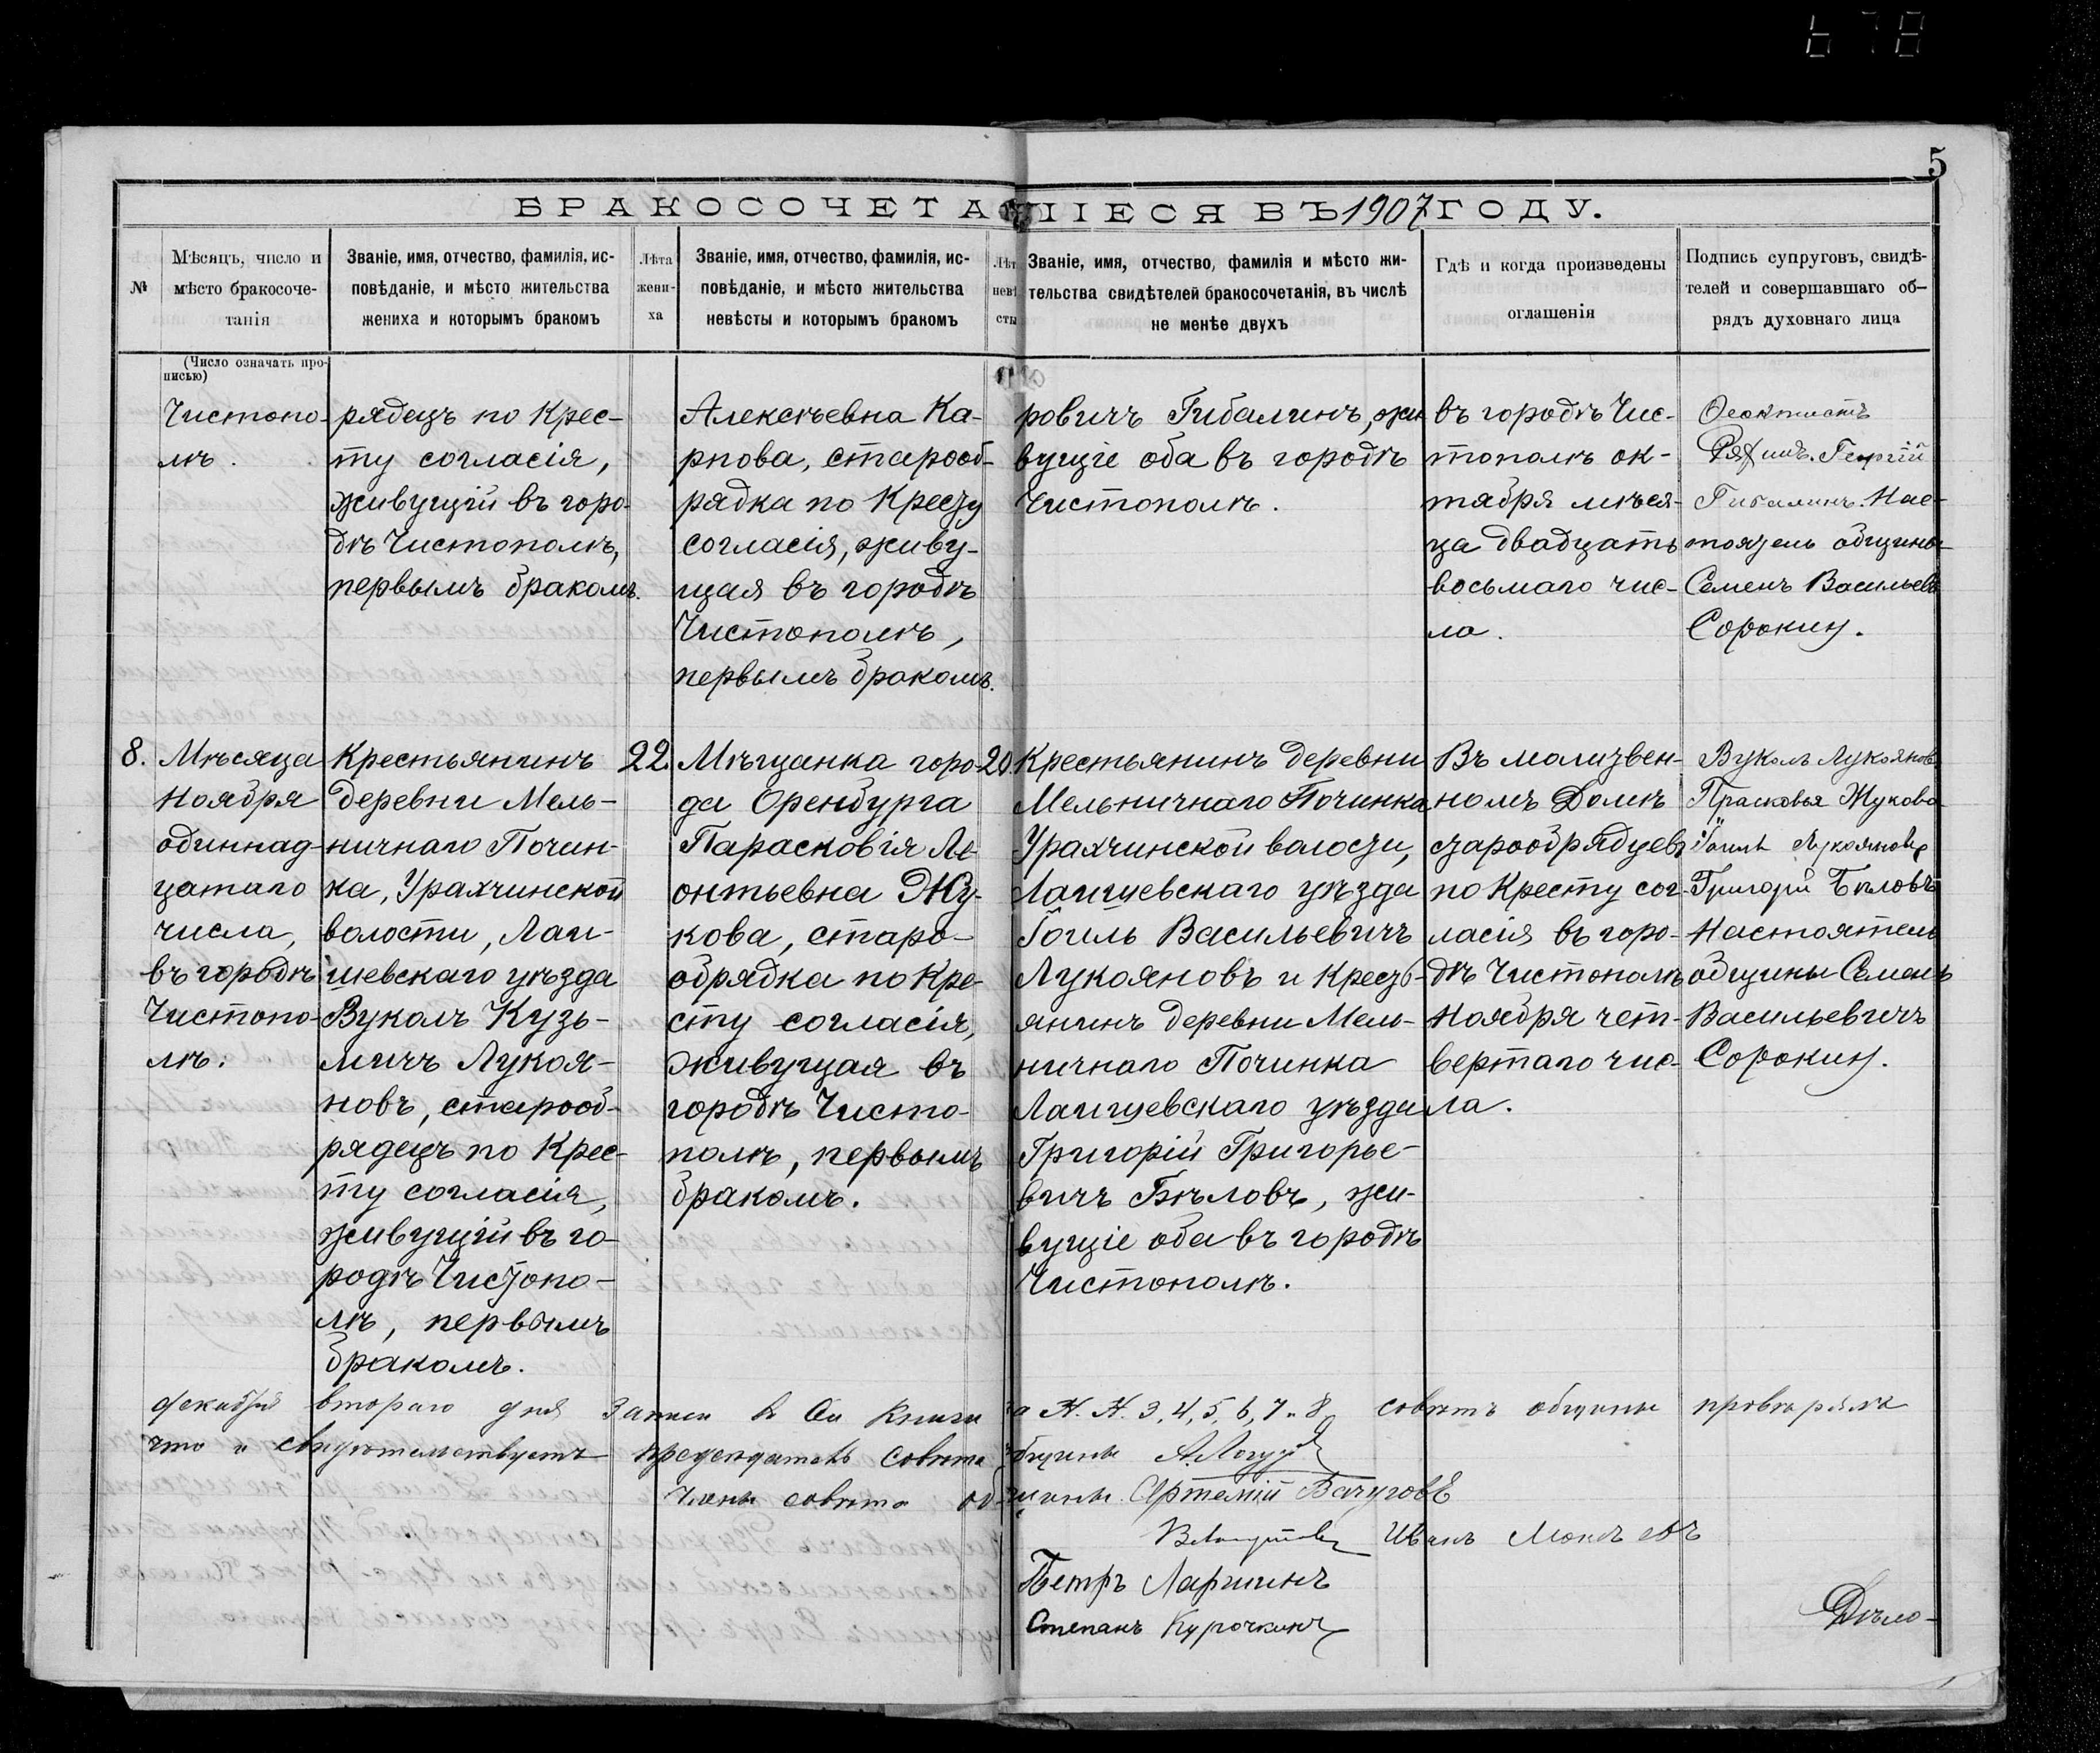 5
БРАКОСОЧЕТАВШІЕСЯ ВЪ 1907 ГОДУ.
№
Мѣсяцъ, число и
мѣсто бракосоче-
танія
Званіе, имя, отчество, фамилія, ис-
повѣданіе, и мѣсто жительства
жениха и которымъ бракомъ
Лѣта
жени-
ха
Званіе, имя, отчество, фамилія, ис-
повѣданіе, и мѣсто жительства
невѣсты и которымъ бракомъ
Лѣт
невѣ
сты
Званіе, имя, отчество, фамилія и мѣсто жи-
тельства свидѣтелей бракосочетанія, въ числѣ
не менѣе двухъ
Гдѣ и когда произведены
оглашенія
Подпись супруговъ, свидѣ-
телей и совершавшаго об-
рядъ духовнаго лица
(Число означать про-
писью)
Чистопо-
лѣ.
рядецъ по Крес-
ту согласія,
живущій въ горо-
дѣ Чистополѣ,
первымъ бракомъ.
Алексѣевна Ка-
рпова, старооб-
рядка по Кресту
согласія, живу-
щая въ городѣ
Чистополѣ,
первымъ бракомъ.
ровичъ Гибалинъ, жи
вущіе оба въ городѣ
Чистополѣ.
въ городѣ Чис-
тополѣ ок-
тября мѣся-
ца двадцать
восьмаго чис-
ла.
Феоктистъ
Георгій
Гибалинъ. Нас-
тоятель общины
Семенъ Васильевъ
Сорокин.
8.
Мѣсяца
Ноября
одиннад-
цатаго
числа,
въ городѣ
Чистопо-
лѣ.
Крестьянинъ
деревни Мель-
ничнаго Почин-
ка, Урахчинской
волости, Лаи-
шевскаго уѣзда
Вуколъ Кузь-
мичъ Лукоя-
новъ, старооб-
рядецъ по Крес-
ту согласія,
живущій въ го-
родѣ Чистопо-
лѣ, первымъ
бракомъ.
22.
Мѣщанка горо-
да Оренбурга
Парасковія Ле
онтьевна Жу-
кова, старо-
обрядка по Кре-
сту согласія,
живущая въ
городѣ Чисто-
полѣ, первымъ
бракомъ.
20.
Крестьянинъ деревни
Мельничнаго Починка
Урахчинской волости,
Лаишевскаго уѣзда
Іоиль Васильевичъ
Лукояновъ и Кресть-
янинъ деревни Мель-
ничнаго Починка
Лаишевскаго уѣзда
Григорій Григорье-
вичъ Бѣловъ, жи-
вущіе оба въ городѣ
Чистополѣ.
Въ молитвен-
номъ Домѣ
старообрядцевъ
по Кресту сог-
ласія въ горо-
дѣ Чистополѣ
Ноября чет-
вертаго чис-
ла.
Вуколъ Лукоянов
Прасковья Жукова
Іоиль Лукояновъ
Григорій Бѣловъ
Настоятель
общины Семенъ
Васильевичъ
Сорокин.
декабря втораго дня Записи въ Сей Книги за Н. Н. 3, 4, 5, 6, 7 и 8 совѣтъ общины провѣрялъ
что и свидѣтельствуетъ председатель Совѣта общины
Члены совѣта общины. Артемій Вачуговъ
Иванъ
Петръ Ларшинъ
Степанъ Курочкинъ
Дѣло-